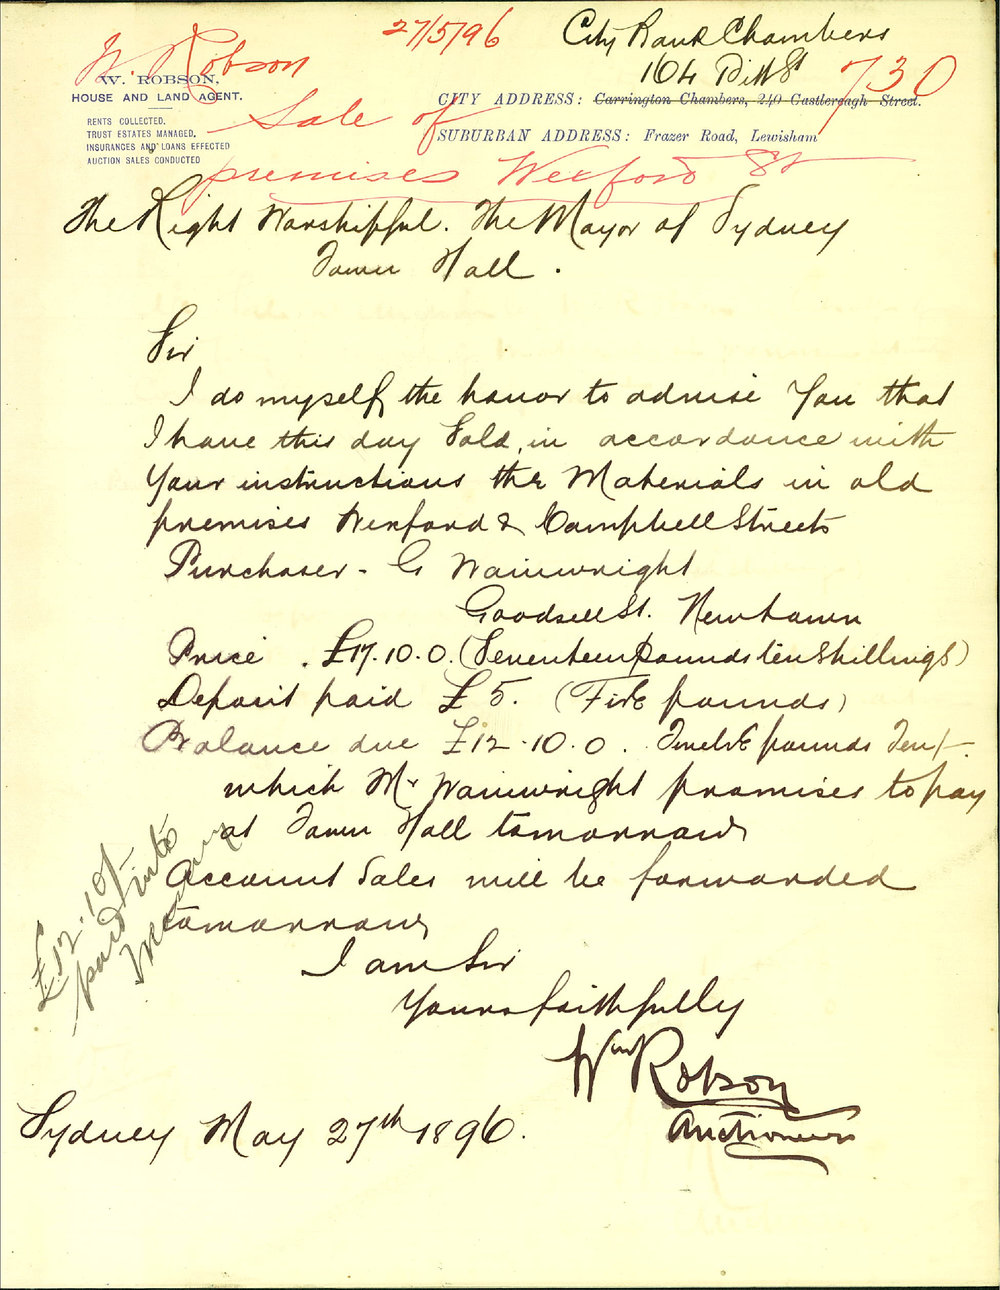 27/5/96
City Bank Chambers
164 Pitt St
730
W. Robson
W. ROBSON,
HOUSE AND LAND AGENT.
RENTS COLLECTED.
TRUST ESTATES MANAGED.
INSURANCES AND LOANS EFFECTED
AUCTION SALES CONDUCTED
CITY ADDRESS: Carrington Chambers, 240 Castlereagh Street.
SUBURBAN ADDRESS: Frazer Road, Lewisham
Sale of
premises Wexford St
The Right Worshipful. The Mayor of Sydney
Town Hall.
Sir
I do myself the honor to advise You that
I have this day Sold, in accordance with
Your instructions the Materials in old
premises Wexford & Campbell Streets
Purchaser - G Wainwright
Goodsell St. Newtown
Price . £17.10.0. (Seventeen pounds ten Shillings)
Deposit paid £5. (Five pounds)
Balance due £12.10.0. Twelve pounds Ten/-
which Mr Wainwright promises to pay
at Town Hall tomorrow
Account Sales will be forwarded
tomorrow
£12.10/-
paid into
I am Sir
Yours faithfully
Wm Robson
Auctioneer
Sydney May 27th 1896.